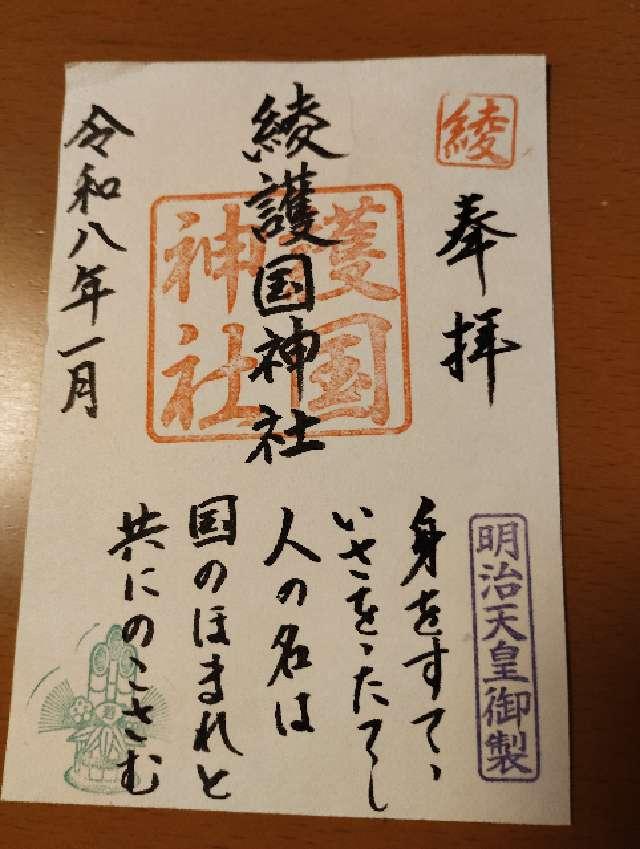 綾
奉拝
綾護国神社
護国
神社
令和八年一月
明治天皇御製
身をすてゝ
いさをゝたてし
人の名は
国のほまれと
共にのこさむ